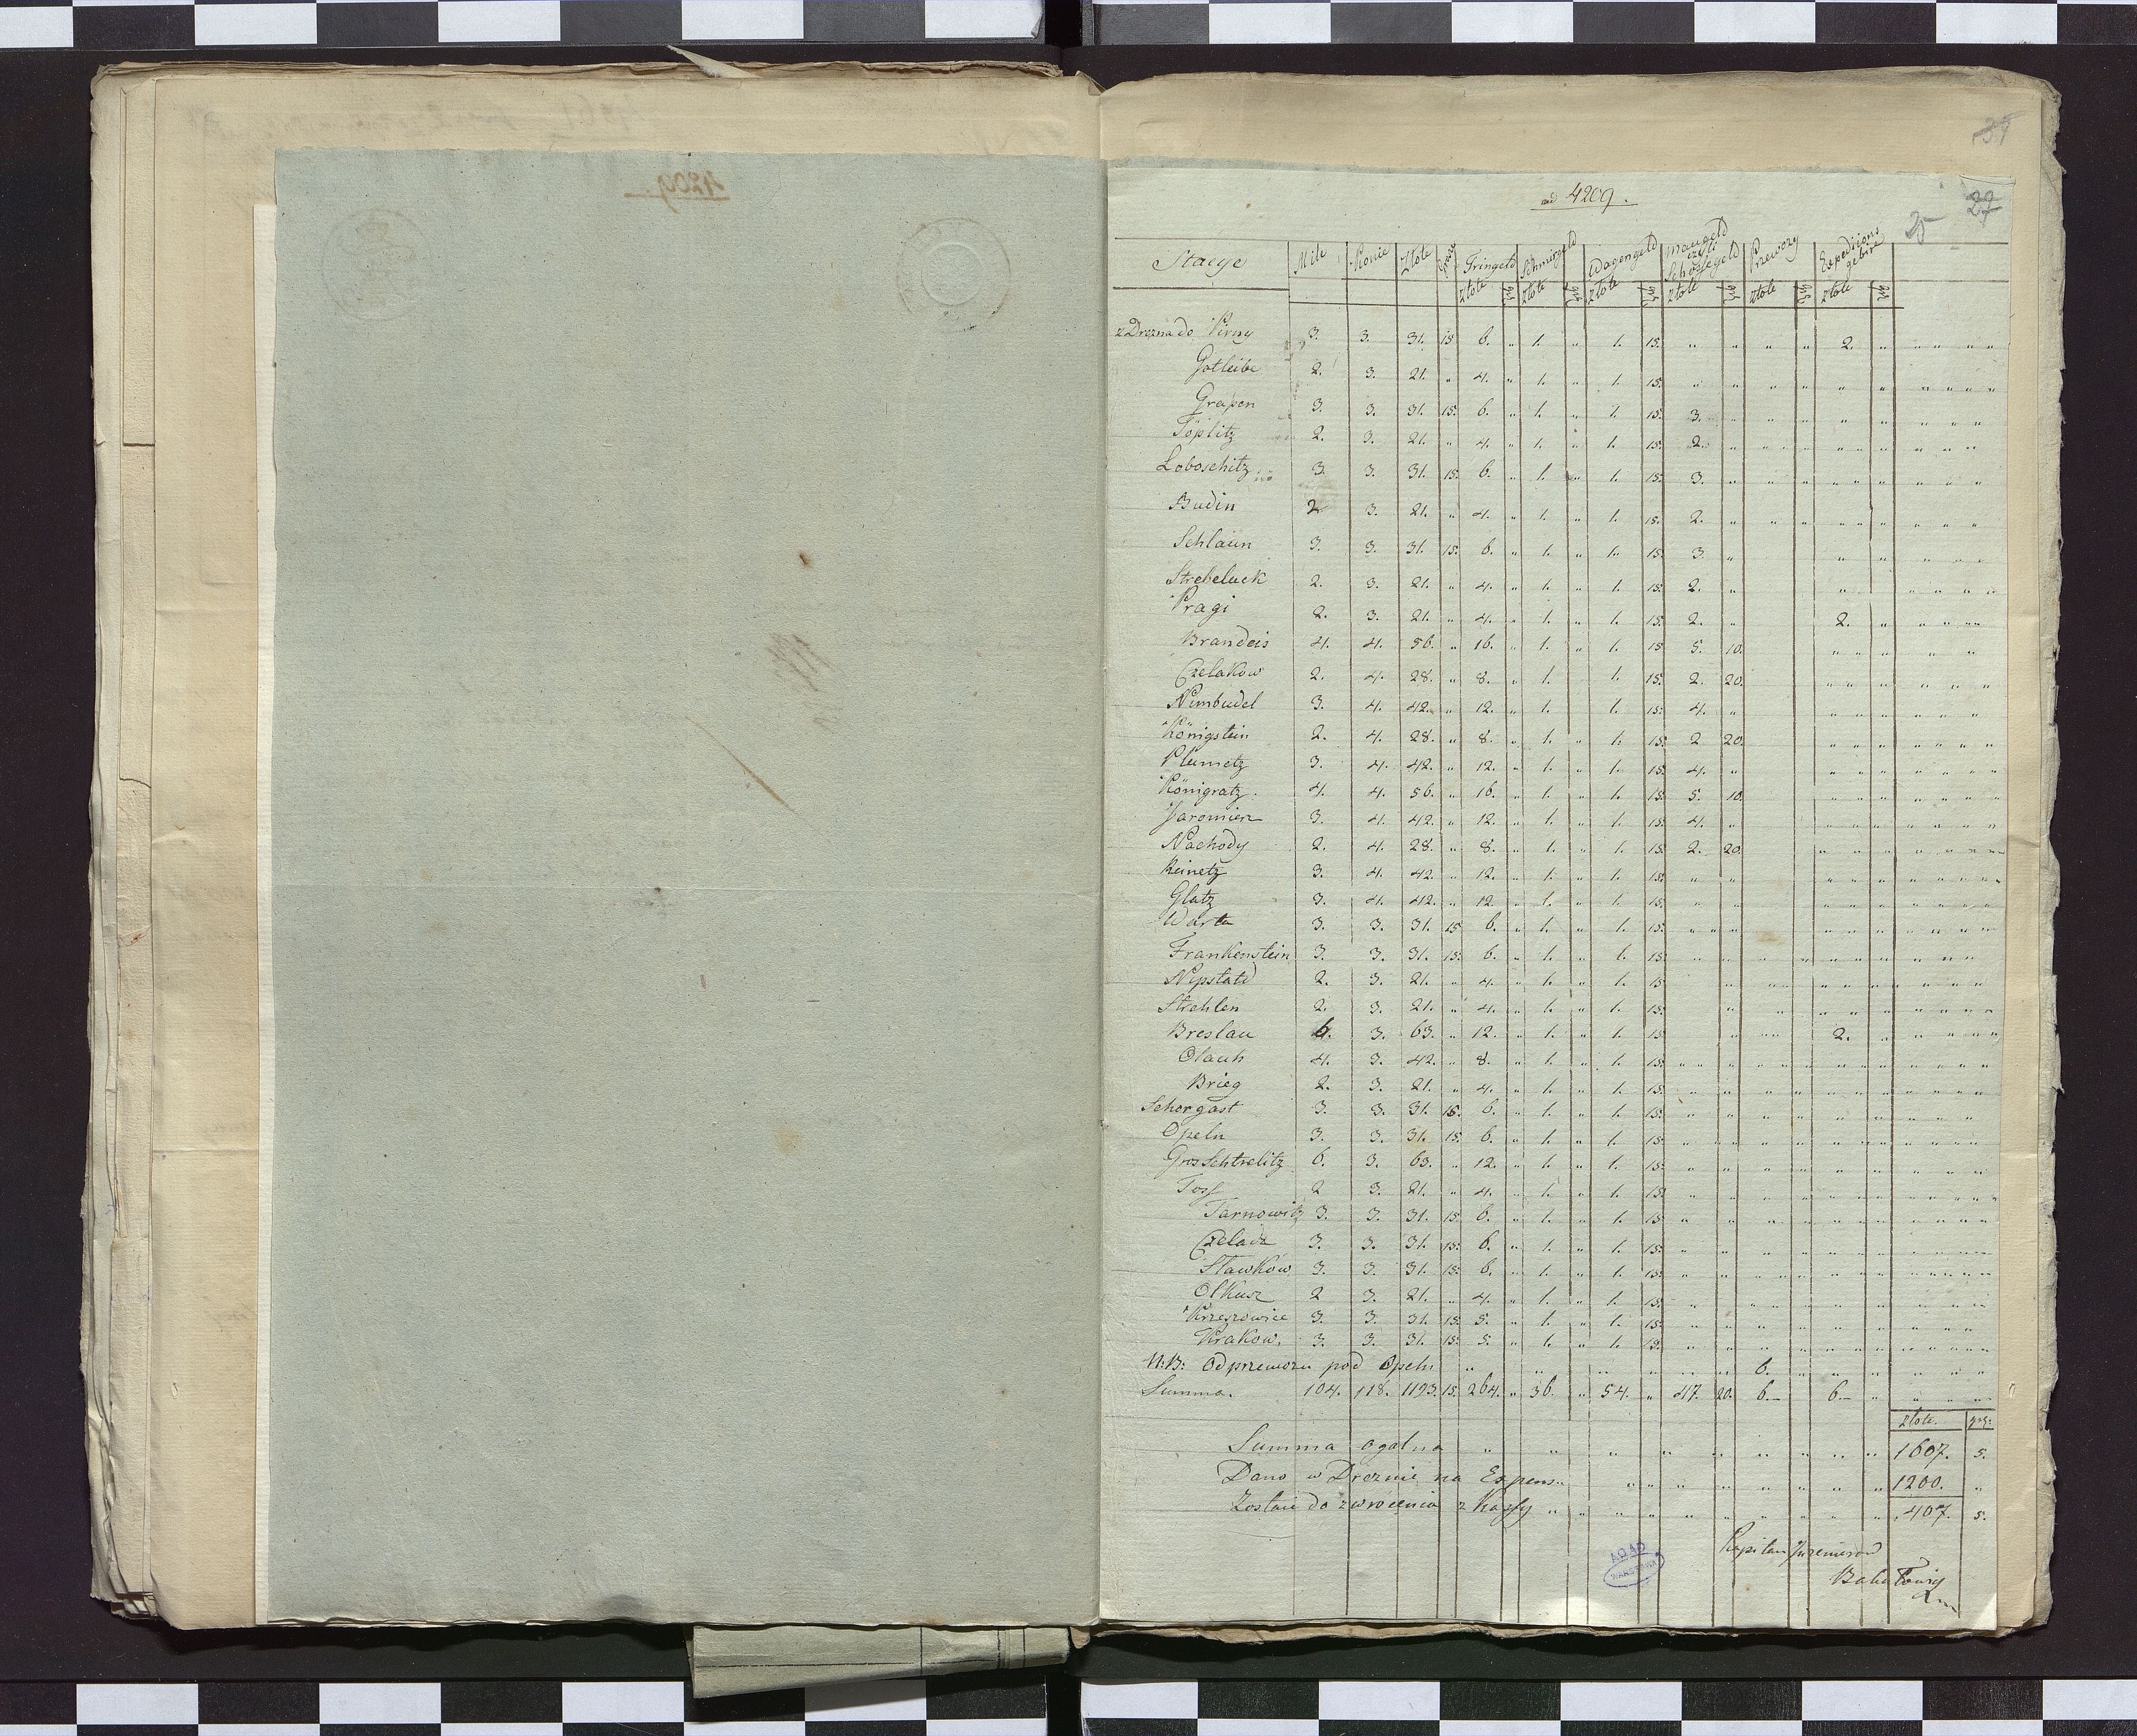 4209.
31
ad 4209.
25 27
Stacye Mile Konie Złote grsz Tringeld Schmirgeld Wagengeld Maugeld czyli Schossegeld Przewozy Expedicions gebire
złote grz złote grz złote grz złote grz złote grz złote grz
z Drezna do Pirny 3. 3. 31. 15 6. „ 1. „ 1. 15. „ „ „ „ 2. „
Gotleibe 2. 3. 21. „ 4. „ 1. „ 1. 15. „ „ „ „ „ „
Grapen 3. 3. 31. 15. 6. „ 1. „ 1. 15. 3. „ „ „ „ „
Töplitz 2. 3. 21. „ 4. „ 1. „ 1. 15. 2. „ „ „ „ „
Loboschitz 3. 3. 31. 15. 6. „ 1. „ 1. 15. 3. „ „ „ „ „
Budin 2 3. 21. „ 4. „ 1. „ 1. 15. 2. „ „ „ „ „
Schlaun 3. 3. 31. 15. 6. „ 1. „ 1. 15. 3. „ „ „
Strebeluck 2. 3. 21. „ 4. „ 1. „ 1. 15. 2. „ „ „
Pragi 2. 3. 21. „ 4. „ 1. „ 1. 15. 2. „ 2. „
Brandeis 4. 4. 56. „ 16. „ 1. „ 1. 15 5. 10. „ „
Czelakow 2. 4. 28. „ 8. „ 1. 1. 15. 2. 20. „ „
Nimbudel 3. 4. 42. „ 12. „ 1. 1. 15. 4. „ „ „
Königstein 2. 4. 28. „ 8. „ 1. „ 1. 15. 2 20. „ „
Plumetz 3. 4. 42. „ 12. „ 1. „ 1. 15. 4. „ „ „
Königratz. 4. 4. 56. „ 16. „ 1. „ 1. 15. 5. 10. „ „
Jaromierz 3. 4. 42. „ 12. „ 1. „ 1. 15. 4. „ „ „
Nachody 2. 4. 28. „ 8. „ 1. „ 1. 15. 2. 20. „ „
Reinetz 3. 4. 42. „ 12. „ 1. „ 1. 15. „ „ „ „
Glatz 3. 4. 42. „ 12. „ 1. „ 1. 15. „ „ „ „
Warta 3. 3. 31. 15 6. „ 1. „ 1. 15. „ „ „ „
Frankenstein 3. 3. 31. 15. 6. „ 1. „ 1. 15. „ „ „ „ „ „
Nipstatd 2. 3. 21. „ 4. „ 1. „ 1. 15 „ „ „ „ „
Strehlen 2. 3. 21. „ 4. „ 1. „ 1. 15. „ „ „ „ „
Breslau 6. 3. 63. „ 12. „ 1. „ 1. 15 „ „ 2. „
Olauh 4. 3. 42. „ 8. „ 1. „ 1. 15. „ „ „ „ „ „
Brieg 2. 3. 21. „ 4. „ 1. „ 1. 15. „ „ „ „ „ „
Schorgast 3. 3. 31. 15. 6. „ 1. „ 1. 15. „ „ „ „ „ „
Opeln 3. 3. 31. 15. 6. „ 1. „ 1. 15. „ „ „ „ „ „
Gros Schtrelitz 6. 3. 63. „ 12. „ 1. „ 1. 15. „ „ „ „ „ „
Tosz 2 3. 21. „ 4. „ 1. „ 1. 15. „ „ „ „ „ „
Tarnowitz 3. 3. 31. 15 6. „ 1. „ 1. 15 „ „ „ „ „ „
Czelada 3. 3. 31. 15. 6. „ 1. „ 1. 15. „ „ „ „ „ „
Sławkow 3. 3. 31. 15. 6. „ 1. „ 1. 15. „ „ „ „ „ „
Olkusz 2 3. 21. „ 4. „ 1. „ 1. 15. „ „ „ „ „ „
Krzeszowice 3. 3. 31. 15 5. „ 1. „ 1. 15. „ „ „ „ „ „
Krakow. 3. 3. 31. 15. 5. „ 1. „ 1. 15. „ „ „ „ „ „
N:B: Od przewozu pod Opeln „ „ „ „ „ 6. „ „ „
Summa. 104. 118. 1193. 15. 264. „ 36. „ 54. „ 47. 20. 6.- 6.- „
złote. grz:
Summa ogolna „ „ „ „ „ „ „ 1607. 5.
Dano w Dreznie na Expens „ „ „ „ „ „ 1200. „
Zostaie do zwrocenia z Kassy „ „ „ „ „ „ 407. 5.
Kapitan Inzenierow
AGAD
WARSZAWA